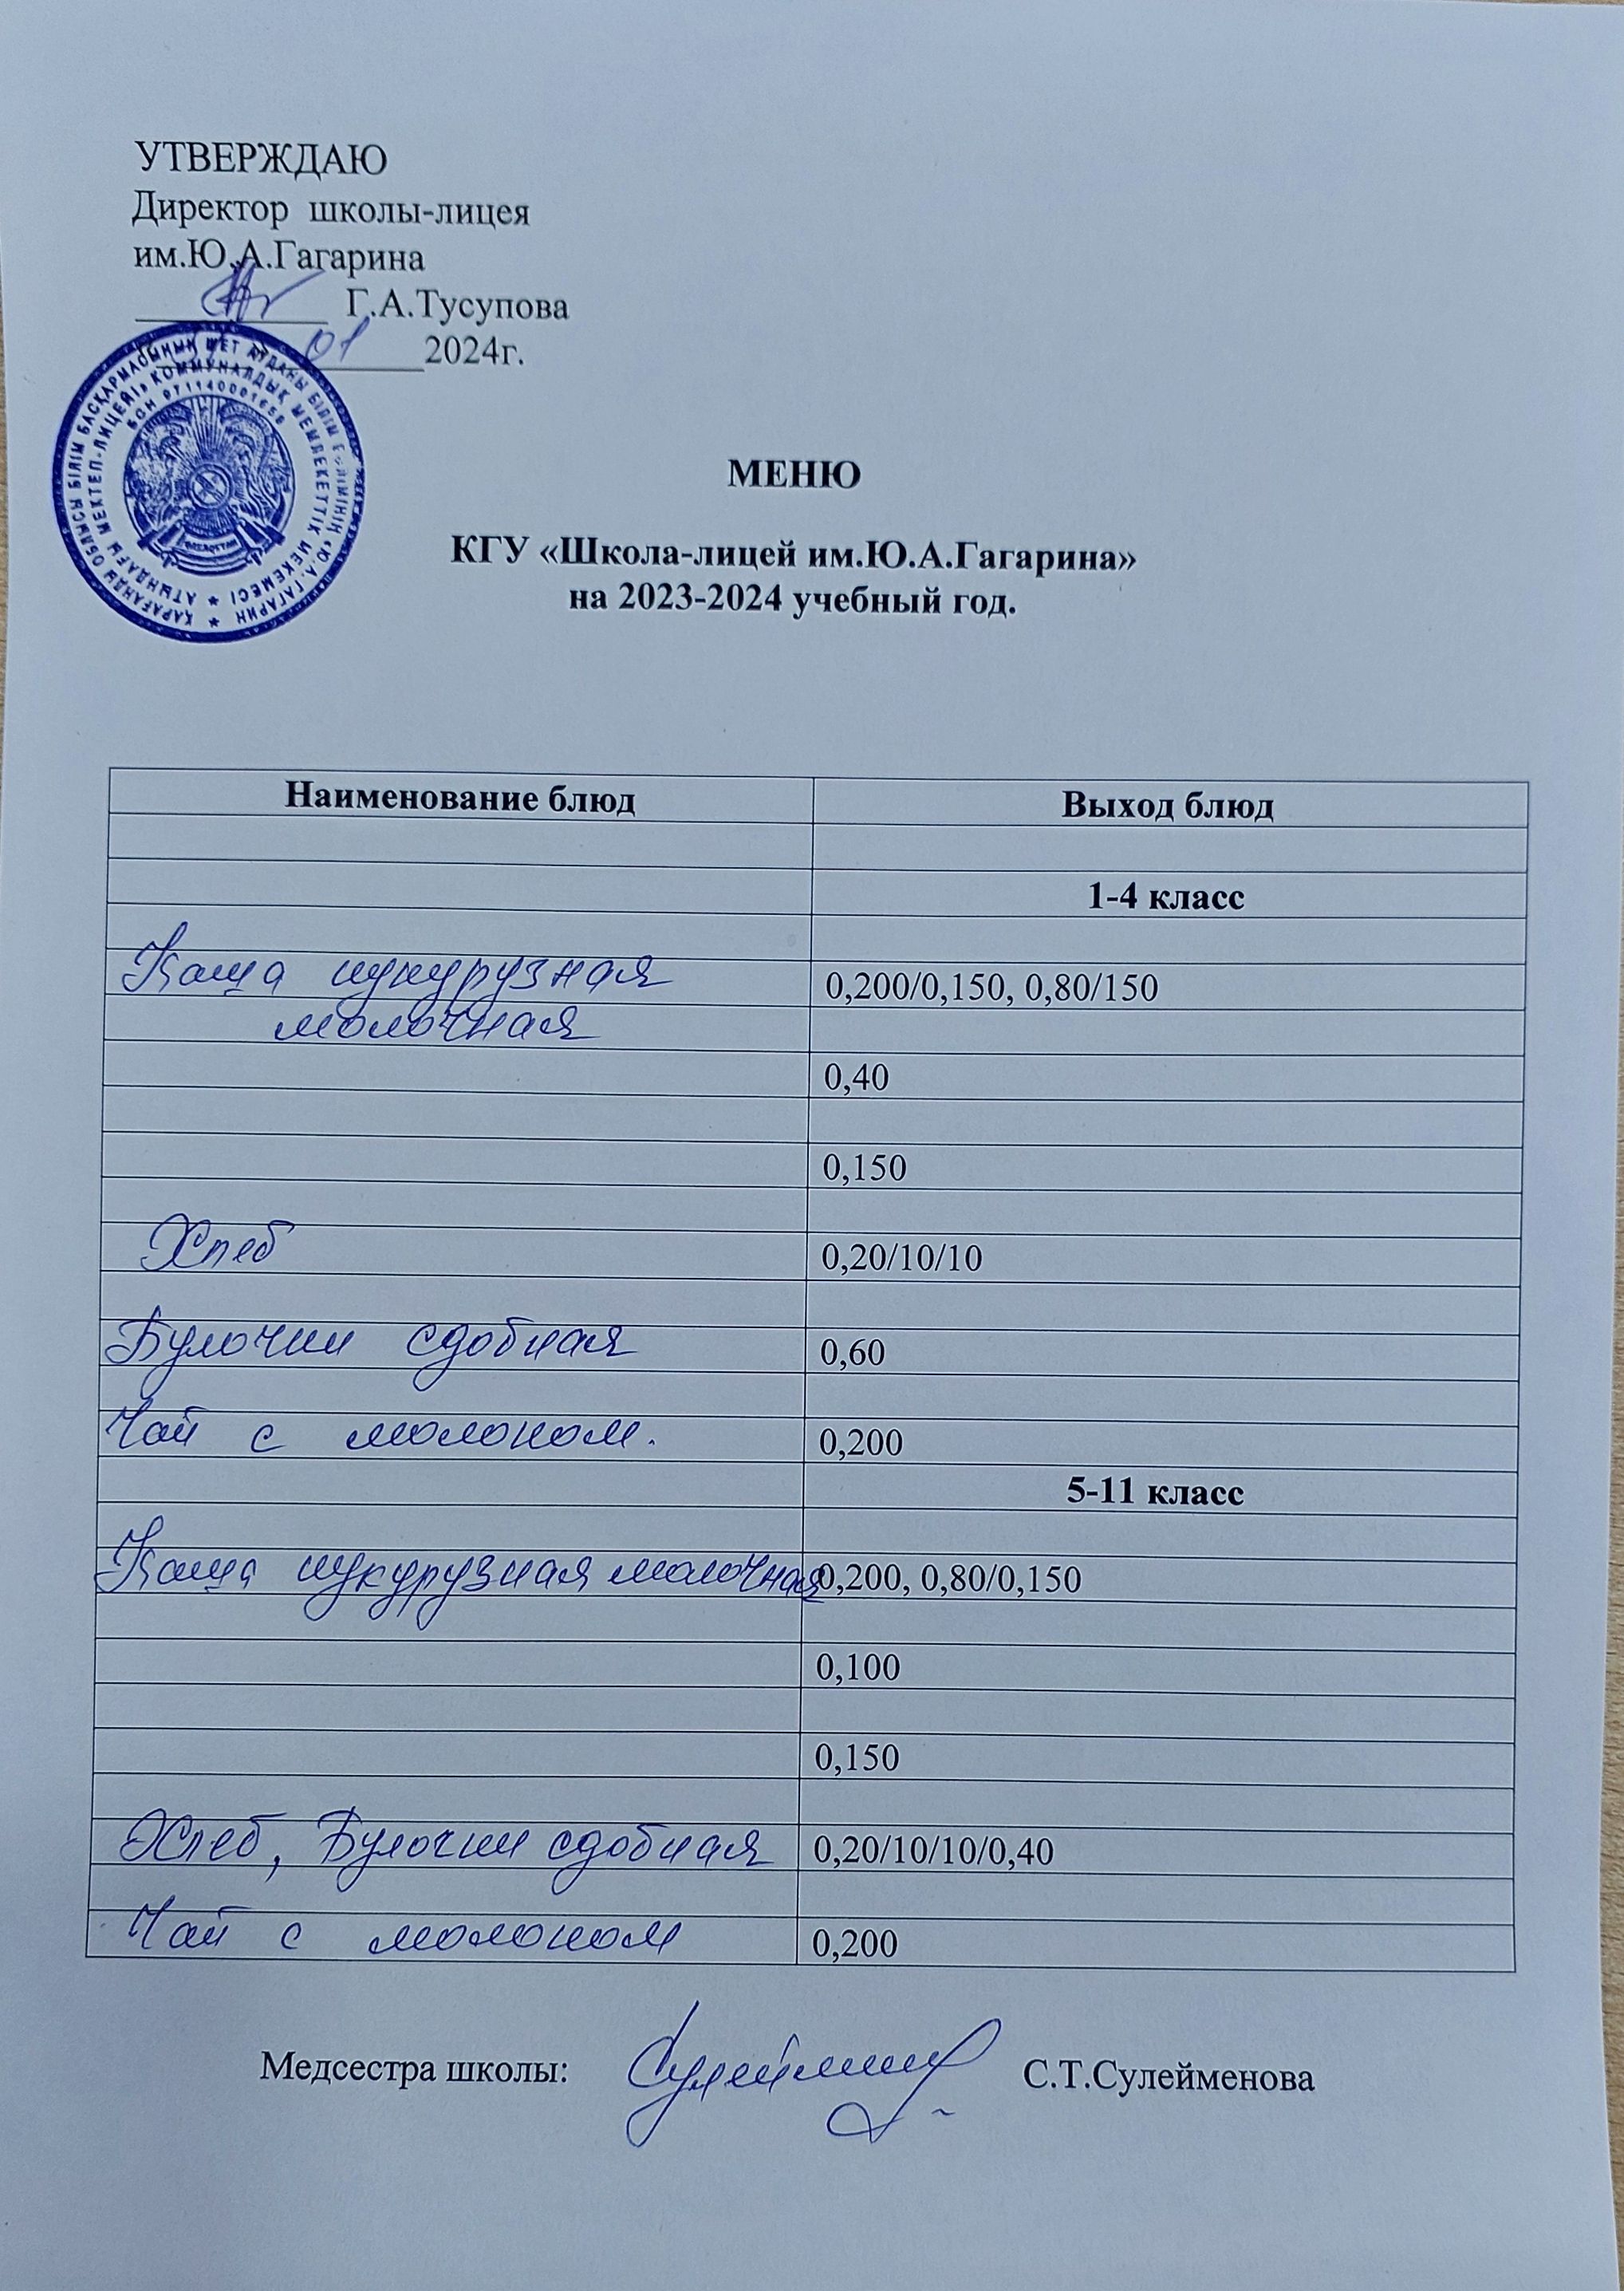 УТВЕРЖДАЮ
Директор школы-лицея
им.Ю.А.Гагарина
Г.А.Тусупова
01 2024г.
ҚАРАҒАНДЫ ОБЛЫСЫ БІЛІМ БАСҚАРМАСЫНЫҢ ШЕТ АУДАНЫ БІЛІМ БӨЛІМІНІҢ «Ю.А.ГАГАРИН
АТЫНДАҒЫ МЕКТЕП-ЛИЦЕЙІ» КОММУНАЛДЫҚ МЕМЛЕКЕТТІК МЕКЕМЕСІ
БСН 971140001658
МЕНЮ
КГУ «Школа-лицей им.Ю.А.Гагарина»
на 2023-2024 учебный год.
Наименование блюд Выход блюд
1-4 класс
Каша кукурузная 0,200/0,150, 0,80/150
молочная
0,40
0,150
Хлеб 0,20/10/10
Булочки сдобная 0,60
Чай с молоком. 0,200
5-11 класс
Каша кукурузная молочная 0,200, 0,80/0,150
0,100
0,150
Хлеб, Булочки сдобная 0,20/10/10/0,40
Чай с молоком 0,200
Медсестра школы: С.Т.Сулейменова